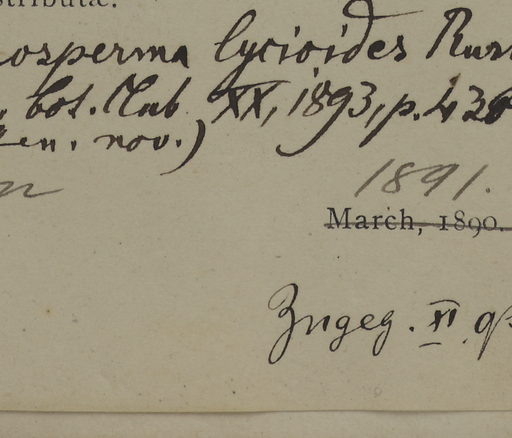 stributæ.
osperma lycioides Kur
bot. Club XX, 1893, p. 436
en. nov.)
1891.
March, 1890.
Zugeg. XI